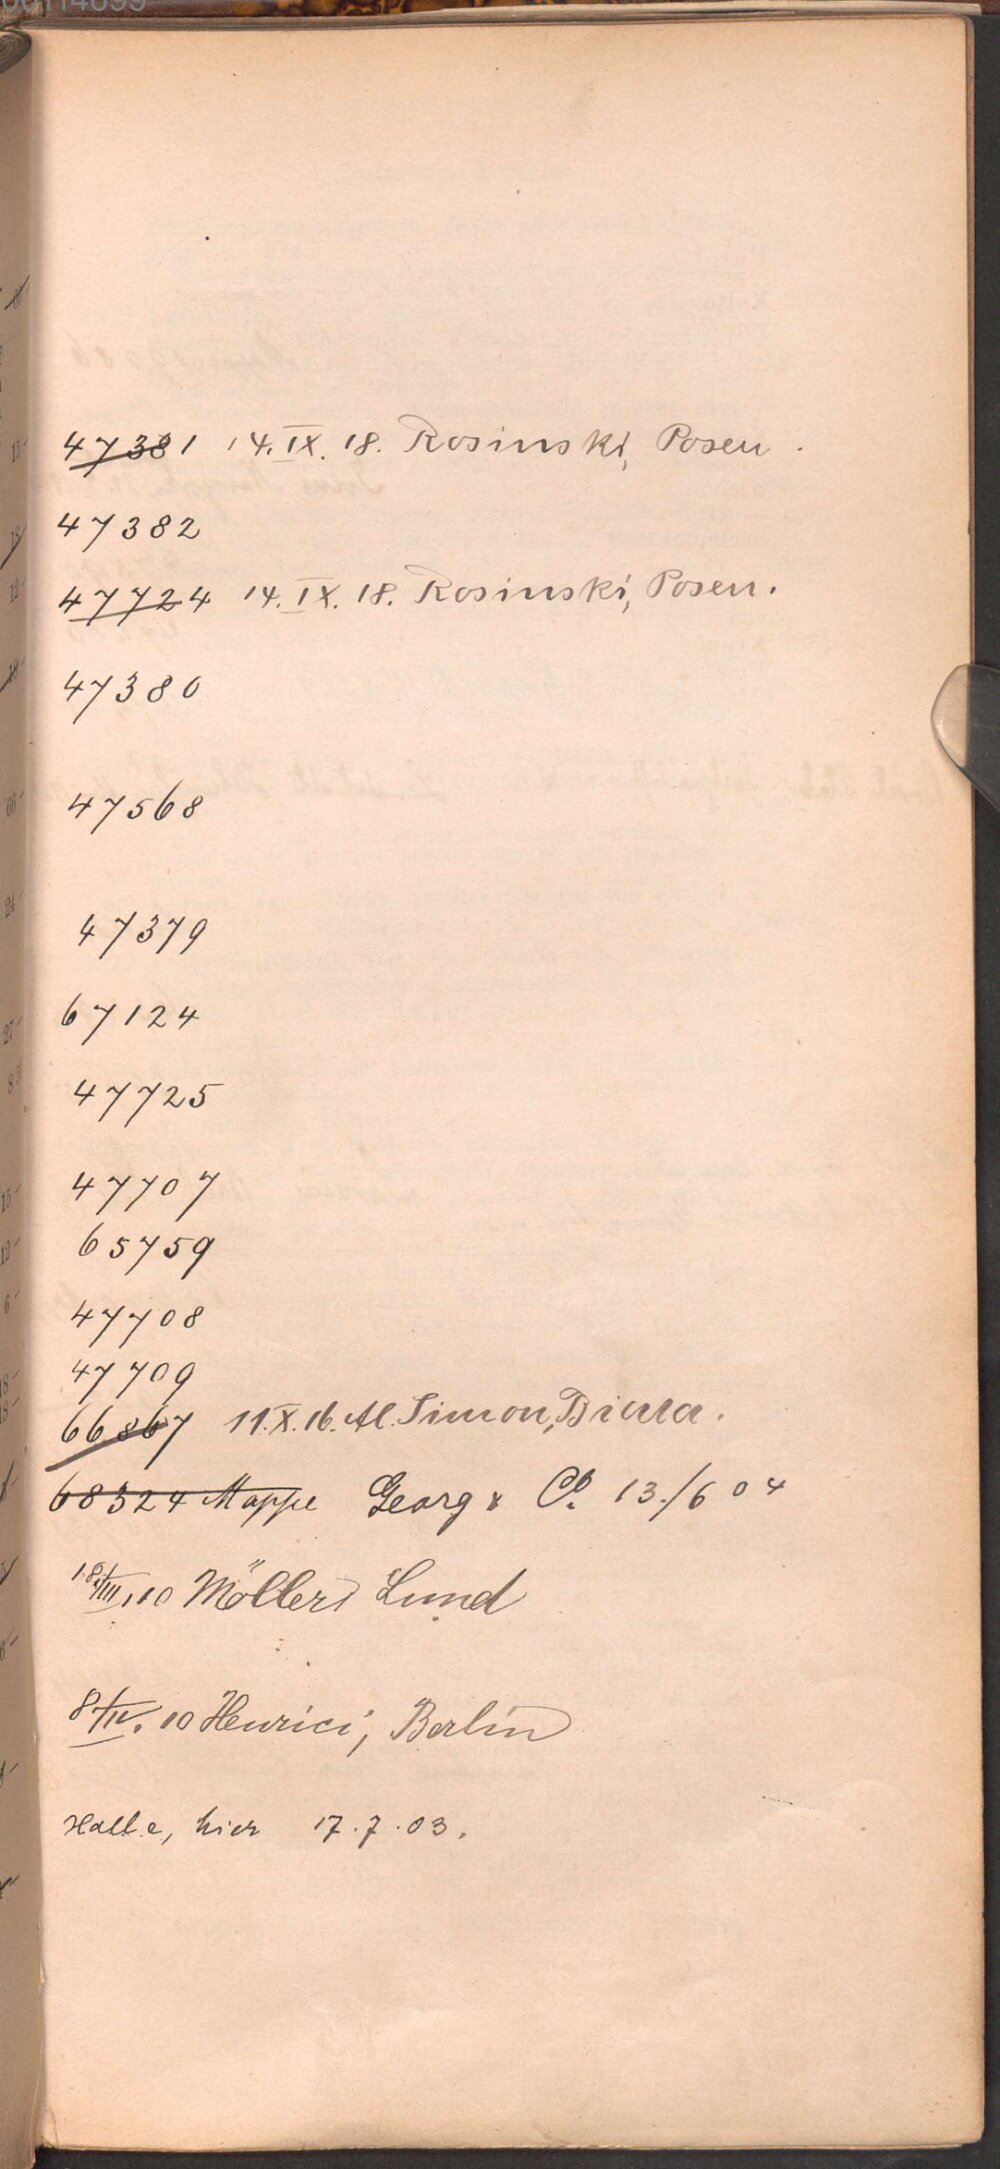 47381 14.IX.18. Rosinski, Posen.
47382
47724 14.IX.18. Rosinski, Posen.
47380
47568
47379
67124
47725
47707
65759
47708
47709
66867 11.X.16. Al. Simon, Biala.
68324 Mappe Georg & Co. 13./6 04
18/III.10 Möller, Lund
8/IV.10 Henrici, Berlin
Halle, hier 17.7.03.